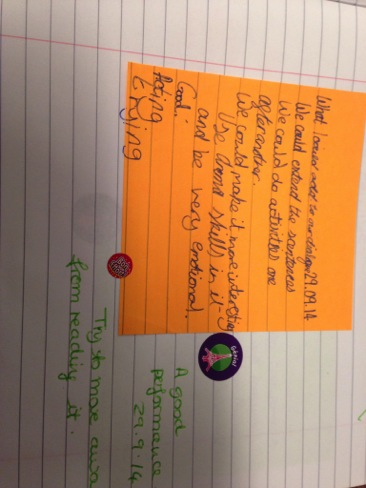 What I could add to our dialogue 29.09.14
We could extend the scentences
We could do activities one
after another.
We could make it more interesting
Use drama skills in it -
and be very emotional.
Good:
Acting
Trying
A good
performance
29.9.14
Try to move away
from reading it.